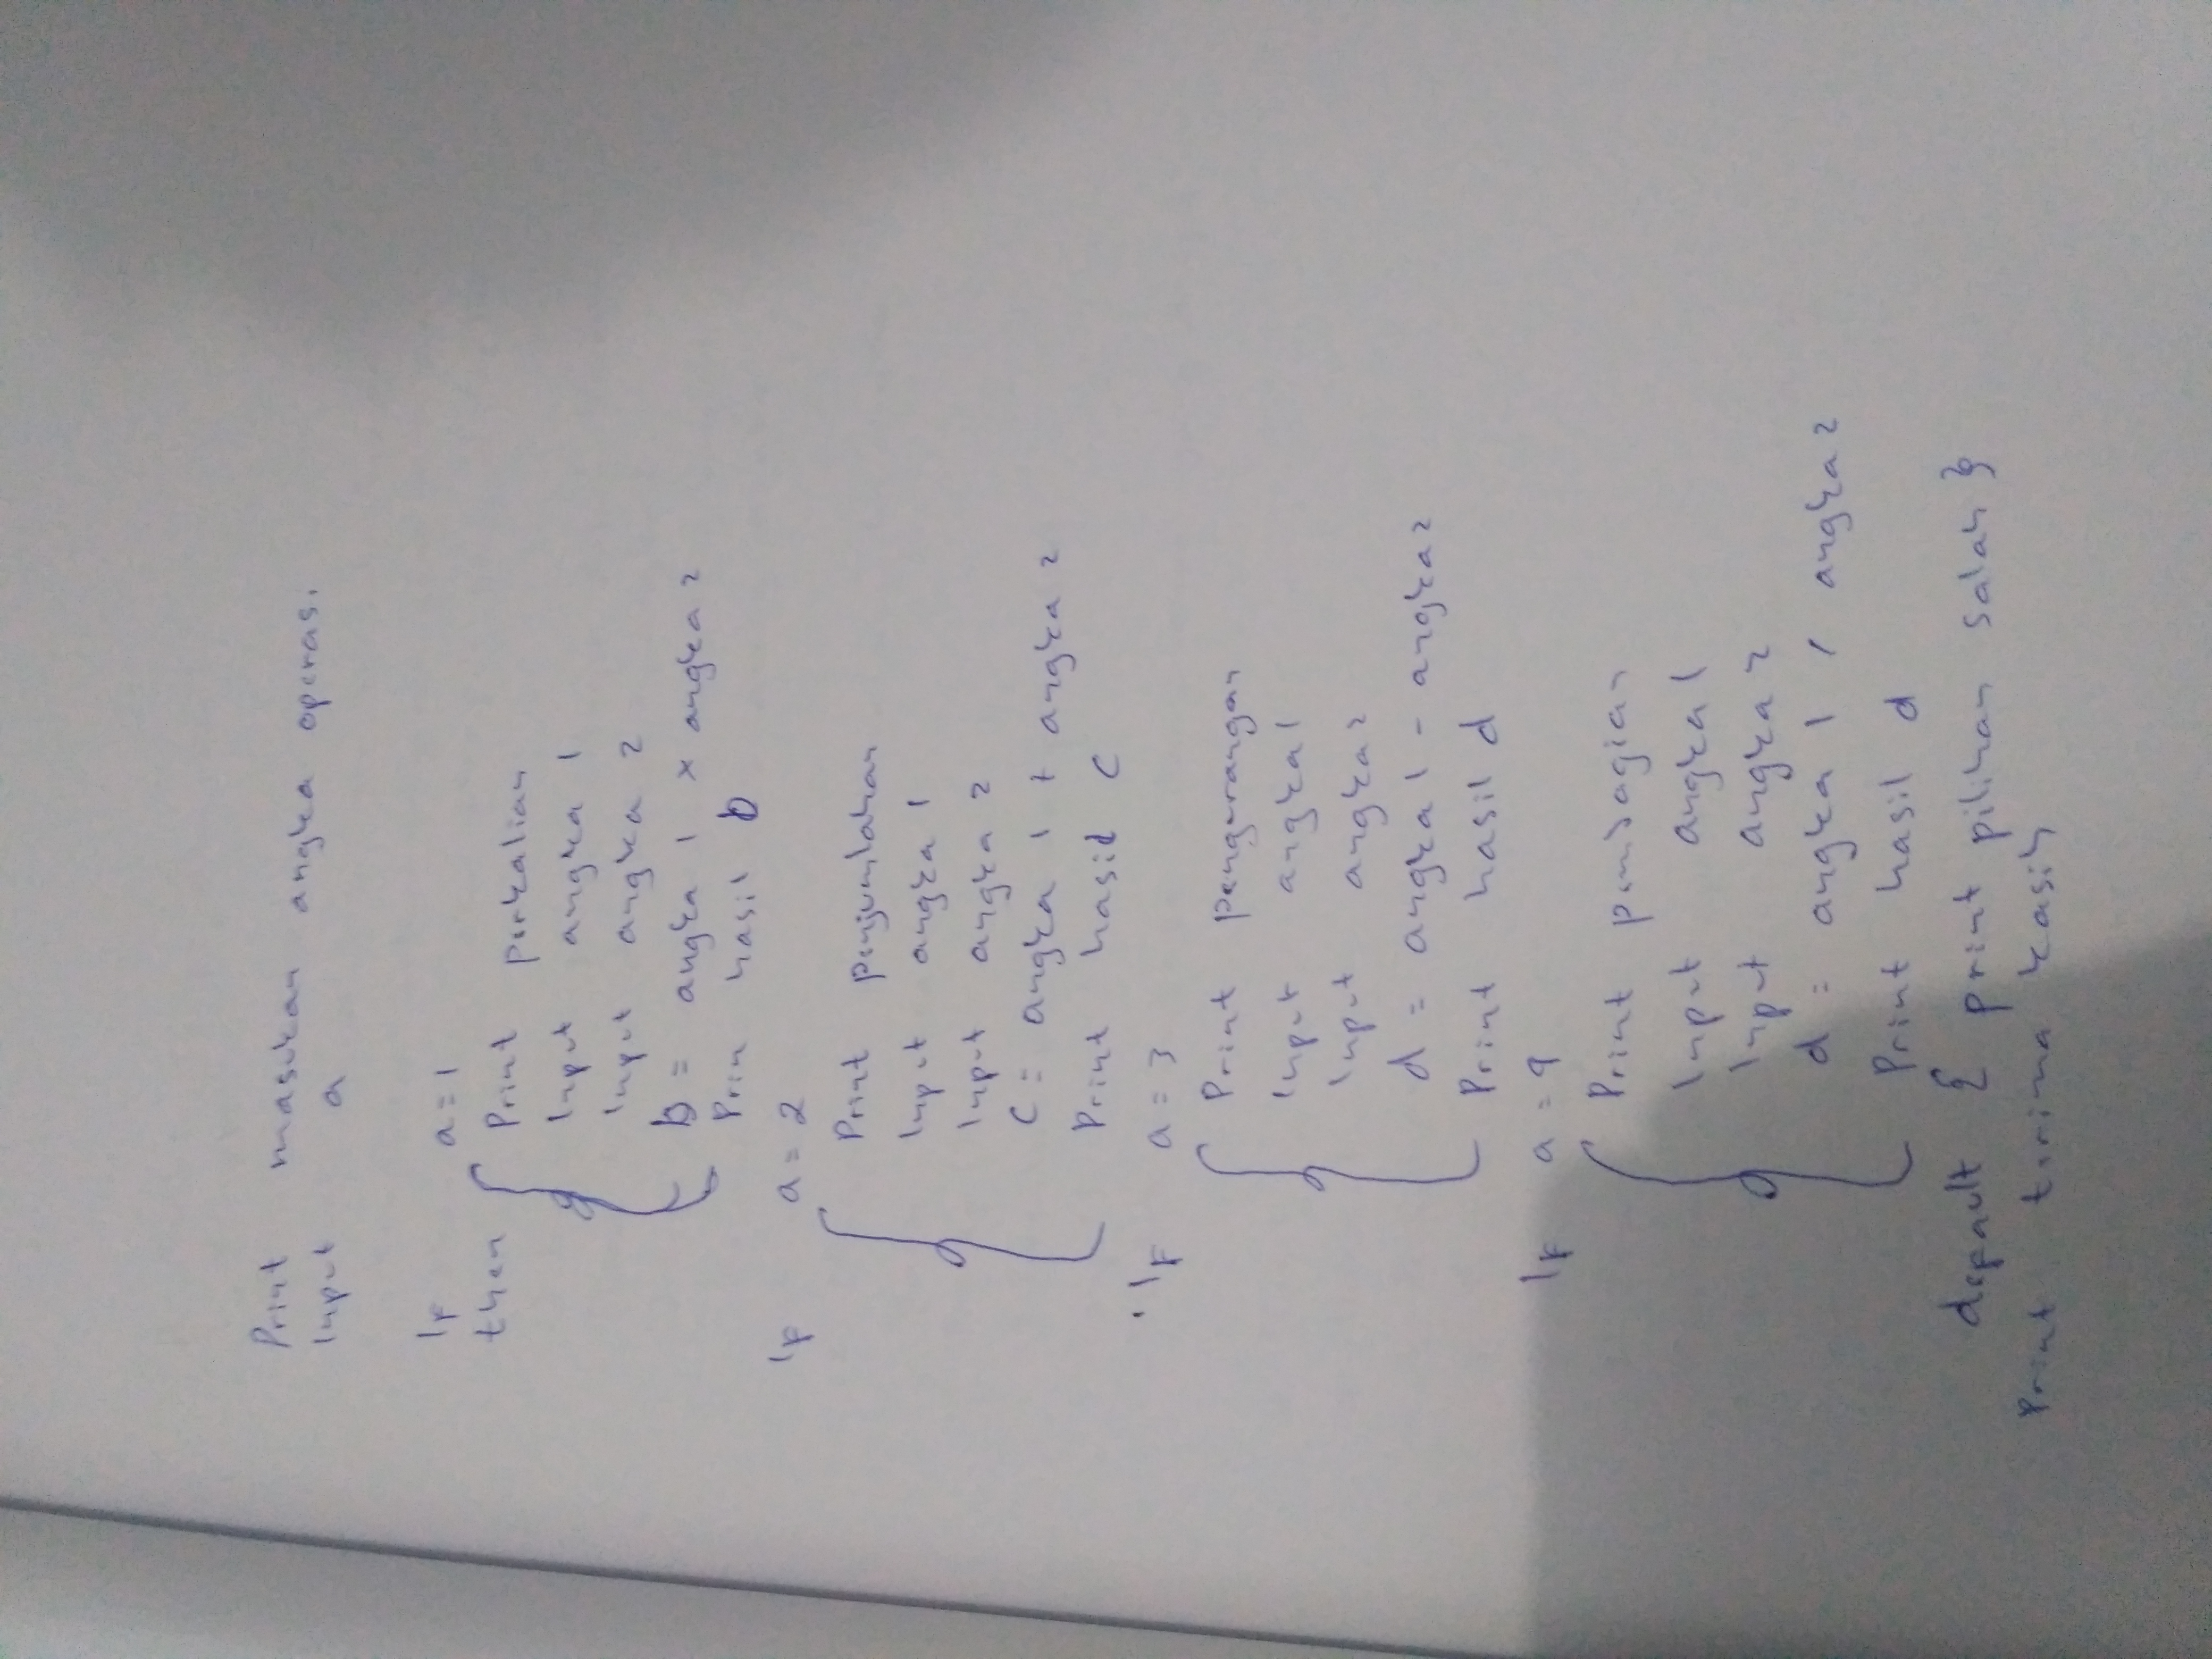 Print masukan angka operasi
Input a
If a = 1
then { Print Perkalian
Input angka 1
Input angka 2
b = angka 1 x angka 2
Prin hasil b
If a = 2
{ Print Penjumlahan
Input angka 1
Input angka 2
c = angka 1 + angka 2
Print hasil c
. If a = 3
{ Print Pengurangan
Input angka 1
Input angka 2
d = angka 1 - angka 2
Print hasil d
If a = 4
{ Print pembagian
Input angka 1
Input angka 2
d = angka 1 / angka 2
Print hasil d
default { print pilihan salah }
Print trima kasih